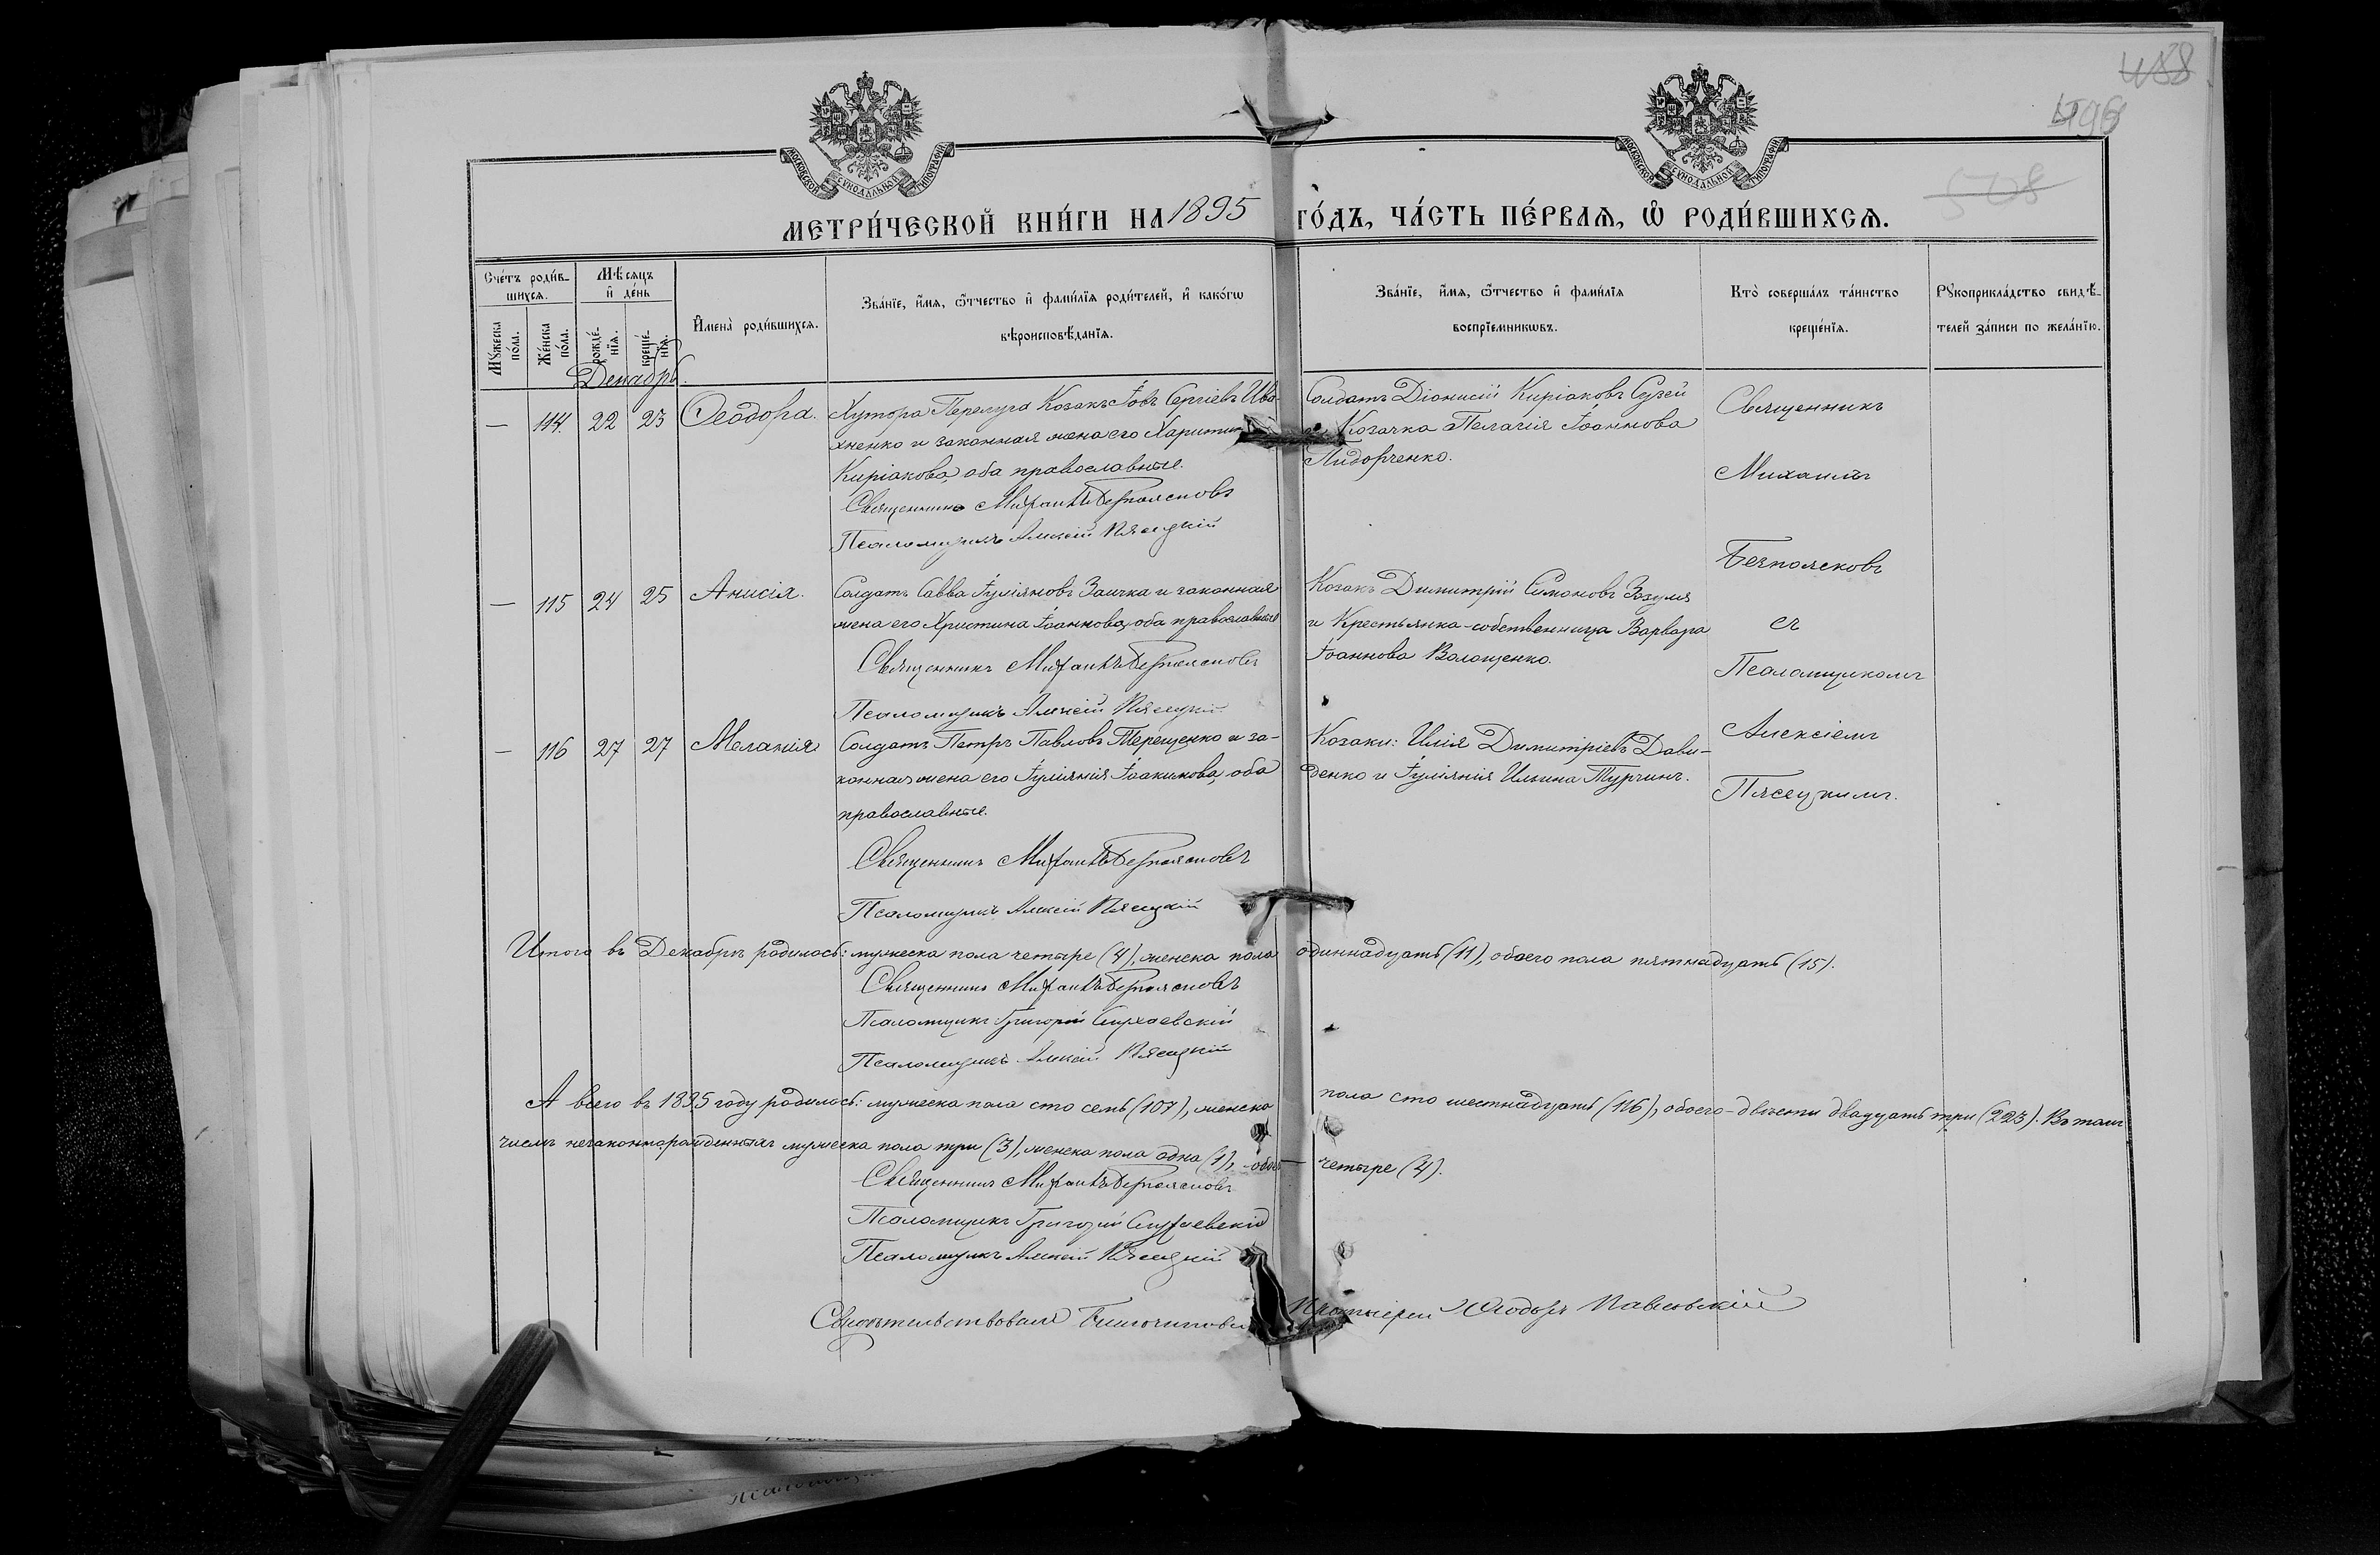 488
496
508
МОСКОВСКОЙ СѴНОДАЛЬНОЙ ТИПОГРАФІИ
МОСКОВСКОЙ СѴНОДАЛЬНОЙ ТИПОГРАФІИ
МЕТРИ́ЧЕСКОЙ КНИ́ГИ НА 1895 ГО́ДЪ, ЧА́СТЬ ПЕ́РВАЯ, Ѡ РОДИ́ВШИХСЯ.
Сче́тъ роди́в-
шихся.
Мѣ́сяцъ
и҆ де́нь
Мꙋ́жеска
по́ла.
Же́нска
по́ла.
рожде́-
нїя.
креще́-
нїя.
И҆мена̀ роди́вшихся.
Зва́нїе, и҆́мя, ѻ҆́тчество и҆ фами́лїя роди́телей, и҆ како́гѡ
вѣроисповѣ́данїя.
Зва́нїе, и҆́мя, ѻ҆́тчество и҆ фами́лїя
воспрїе́мникѡвъ.
Кто̀ соверша́лъ та́инство
креще́нїя.
Рꙋкоприкла́дство свидѣ́-
телей за́писи по жела́нїю.
Декабрь.
— 114. 22 23 Ѳеодора. Хутора Перелуга Козакъ Іовъ Сергіевъ Ива-
хненко и законная жена его Харитин
Киріакова, оба православные.
Священникъ Михаилъ Безпоясковъ
Псаломщикъ Алексій Пясецкій
Солдатъ Діонисій Киріаковъ Сузей
и Козачка Пелагія Іоаннова
Лидорченко.
— 115 24 25 Анисія. Солдатъ Савва Іуліановъ Заичка и законная
жена его Христина Іоаннова, оба православные
Священникъ Михаилъ Безпоясковъ
Псаломщикъ Алексій Пясецкій
Козакъ Димитрій Симоновъ Зозуля
и Крестьянка-собственница Варвара
Іоаннова Волощенко.
— 116 27 27 Меланія Солдатъ Петръ Павловъ Терещенко и за-
конная жена его Іуліанія Іоакимова, оба
православные.
Священникъ Михаилъ Безпоясковъ
Псаломщикъ Алексій Пясецкій
Козаки: Илія Димитріевъ Дави-
денко и Іуліанія Ильина Турчинъ.
Священникъ
Михаилъ
Безпоясковъ
съ
Псаломщикомъ
Алексіемъ
Пясецкимъ.
Итого въ Декабрѣ родилось: мужеска пола четыре (4), женска пола одиннадцать (11), обоего пола пятнадцать (15).
Священникъ Михаилъ Безпоясковъ
Псаломщикъ Григорій
Псаломщикъ Алексій Пясецкій
А всего въ 1895 году родилось: мужеска пола сто семь (107), женска пола сто шестнадцать (116), обоего – двѣсти двадцать три (223). Въ томъ
числѣ незаконнорожденныхъ мужеска пола три (3), женска пола одна (1), обоего — четыре (4).
Священникъ Михаилъ Безпоясковъ
Псаломщикъ Григорій
Псаломщикъ Алексій Пясецкій
Свидѣтельствовалъ Благочинный Протоіерей Ѳеодоръ Павловскій